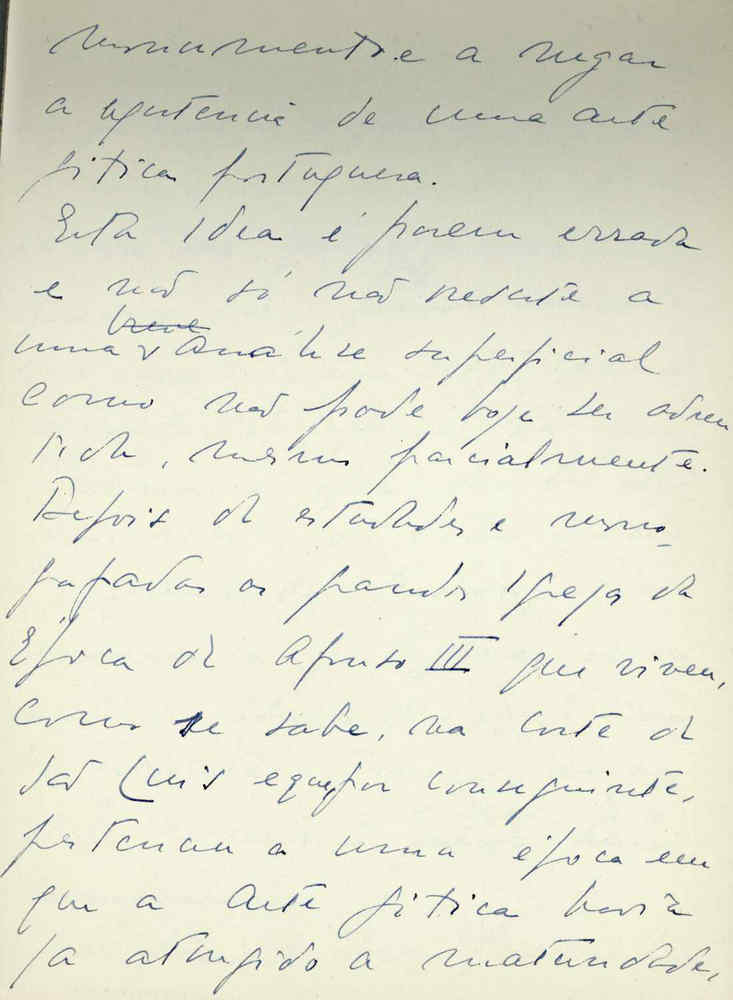 monumento e a negar
a existencia de uma arte
gótica portuguesa.
Esta idea é porem errada
e não só não resiste a
uma breve análise superficial
como não pode hoje ser admi
tida, mesmo parcialmente.
Depois de estudadas e mono-
grafadas as grandes Igrejas da
Época de Afonso III que viveu,
como se sabe, na corte de
São Luis e que, por conseguinte,
pertencem a uma época em
que a arte gótica havia
ja atingido a maturidade,